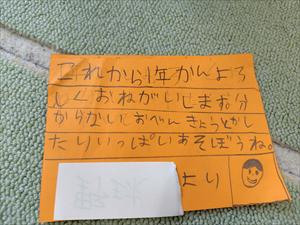 これから1年かんよろ
しくおねがいします。分
からないおべんきょうとかし
たりいっぱいあそぼうね。
より